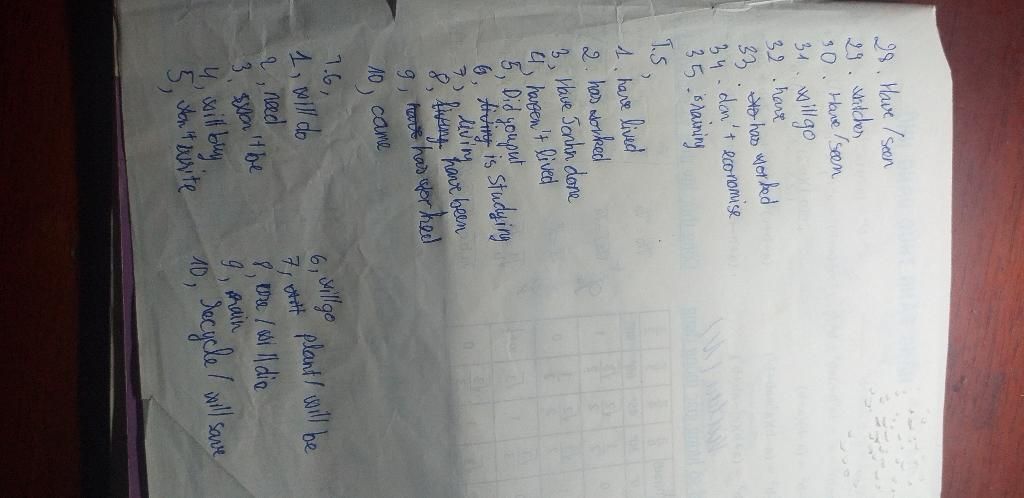 28. Have / seen
29. watches
30. Have / seen
31. will go
32. have
33. has worked
34. don't economise
35. raining
T.5,
1. have lived
2. has worked
3, Have done
4, haven't lived
5, Did you put
6, living is studying
7, living
8, living have been
9, have has worked
10, came
T.6,
1, will do
2, need
3. won't be
4, will buy
5, won't write
6, will go
7, plant / will be
8, use / will die
9, rain
10, recycle / will save